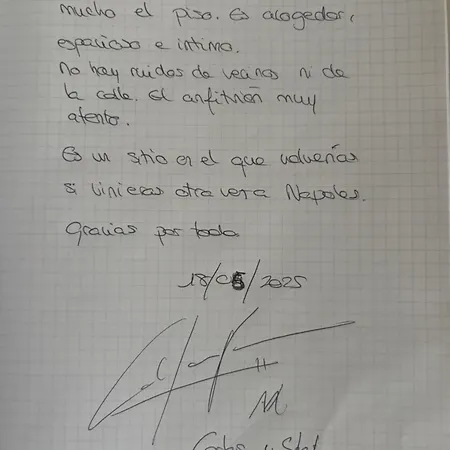 mucho el piso. Es acogedor,
espacioso e íntimo.
No hay ruidos de vecinos ni de
la calle. El anfitrión muy
atento.
Es un sitio en el que volverías
si vinieras otra vez a Napoles.
Gracias por todo.
18/05/2025